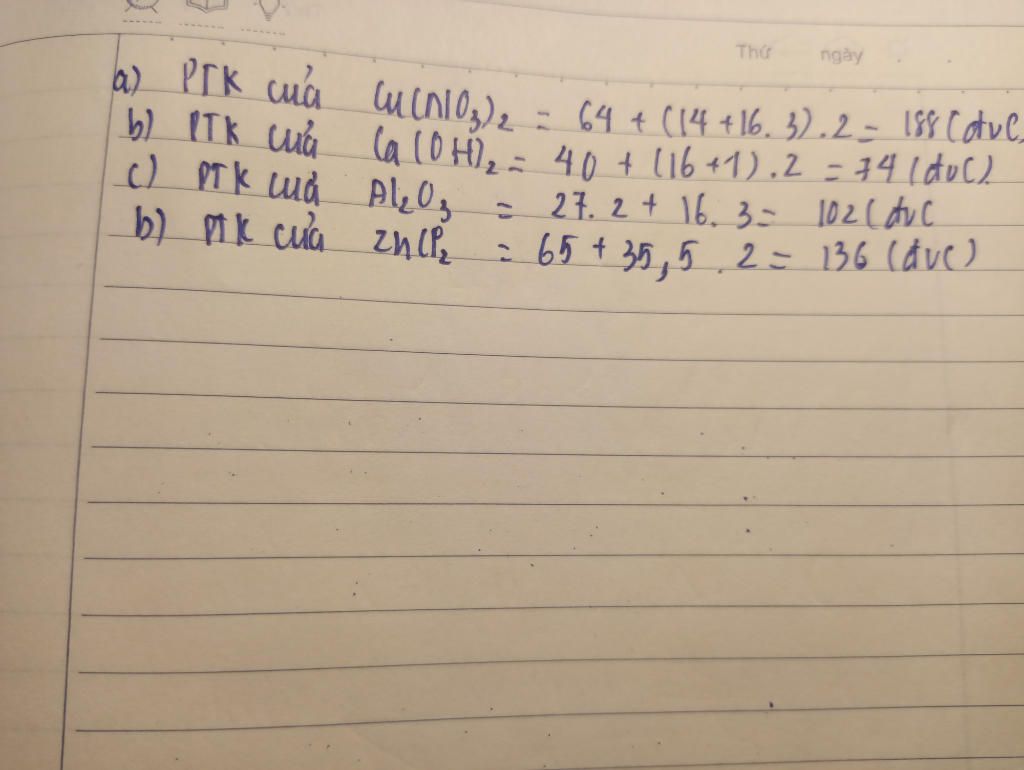 Thứ ngày
a) PTK của Cu(NO3)2 = 64 + (14 + 16. 3). 2 = 188 (đvC)
b) PTK của Ca(OH)2 = 40 + (16 + 1) . 2 = 74 (đvC)
c) PTK của Al2O3 = 27. 2 + 16. 3 = 102 (đvC
b) PTK của ZnCl2 = 65 + 35,5 . 2 = 136 (đvC)